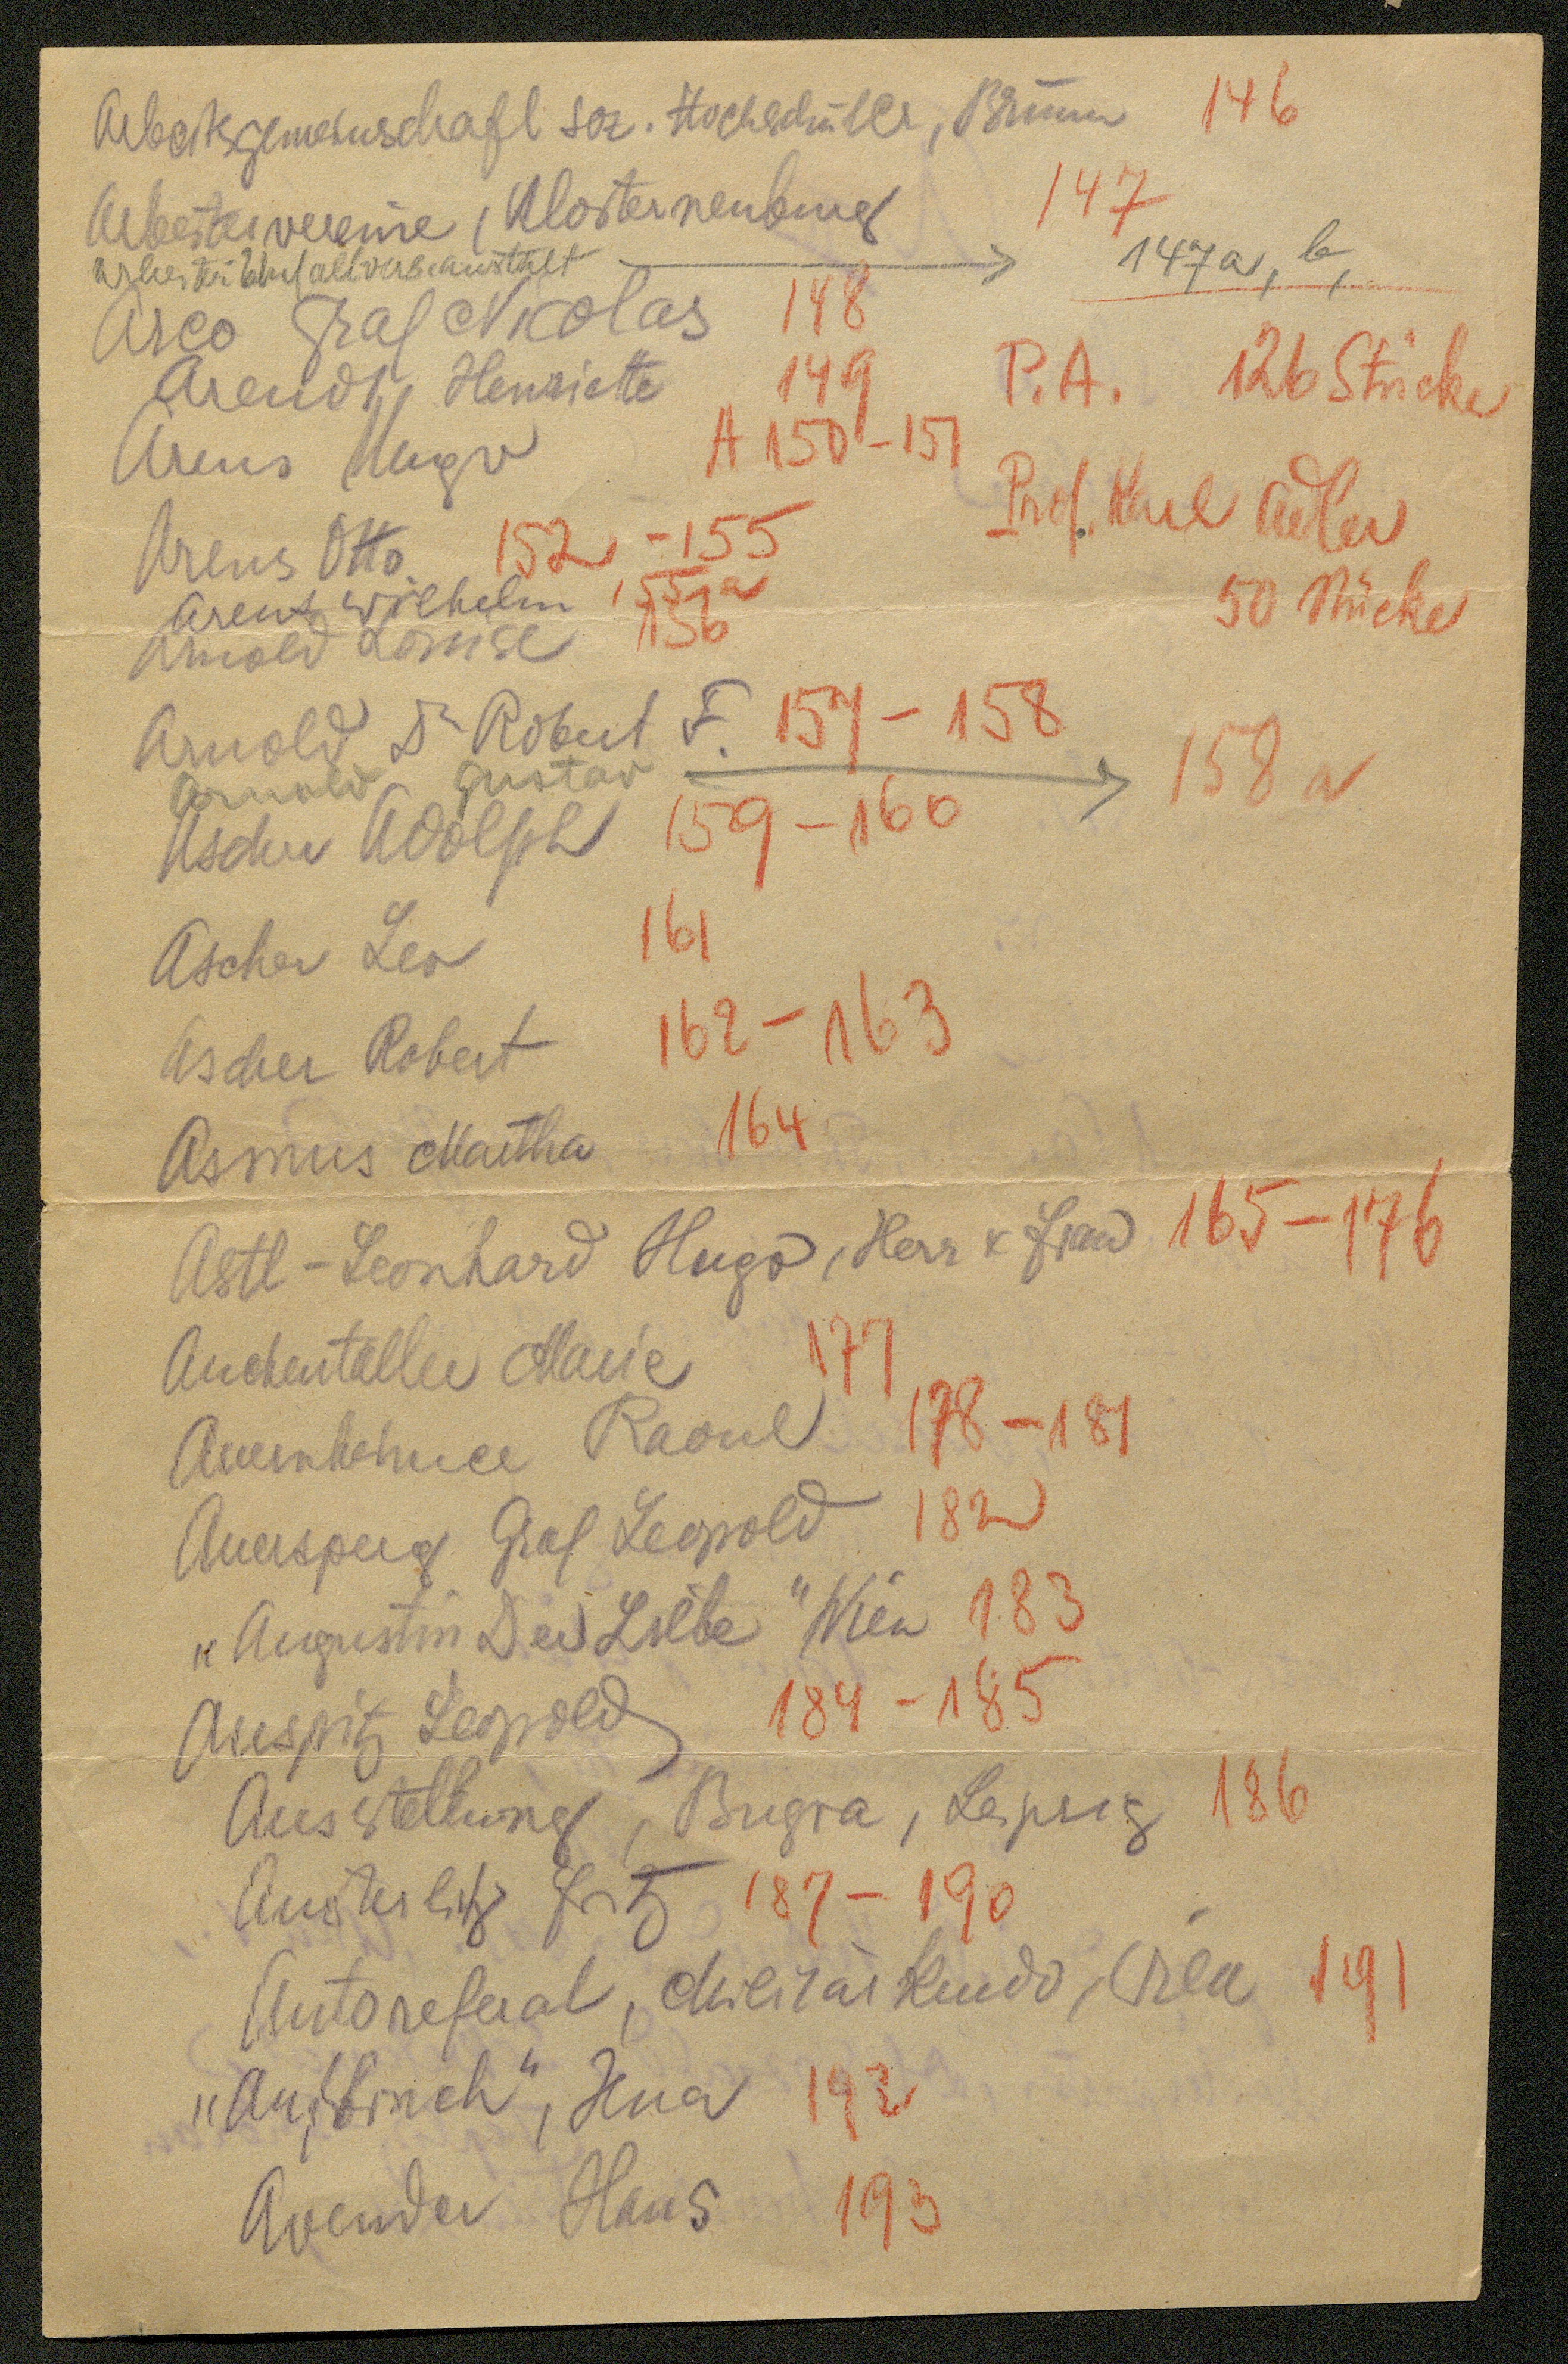 Arbeitsgemeinschaft soz. Hochschüler, Brünn 146
Arbeitervereine, Klosterneuburg 147
Arbeiter Unfallversanstalt → 147a, b,
Arco Graf Nicolas 148
Arendt, Henriette 149 P.A. 126 Stücke
Arens Hugo A 150-151
Prof. Karl Adler
Arens Otto 152-155
50 Stücke
Arent Wilhelm 155a
Arnold Louise 156
Arnold Dr Robert F. 157-158
Arnold Gustav → 158a
Ascher Adolph 159-160
Ascher Leo 161
Ascher Robert 162-163
Asmus Martha 164
Astl-Leonhard Hugo, Herr & Frau 165-176
Auchentaller Marie 177
Auernheimer Raoul 178-181
Auersperg Graf Leopold 182
„Augustin Der Liebe" Wien 183
Auspitz Leopold 184-185
Ausstellung, Bugra, Leipzig 186
Austerlitz Fritz 187-190
Autoreferat, Militärkmdo, Wien 191
„Aufbruch", Jena 192
Avender Hans 193